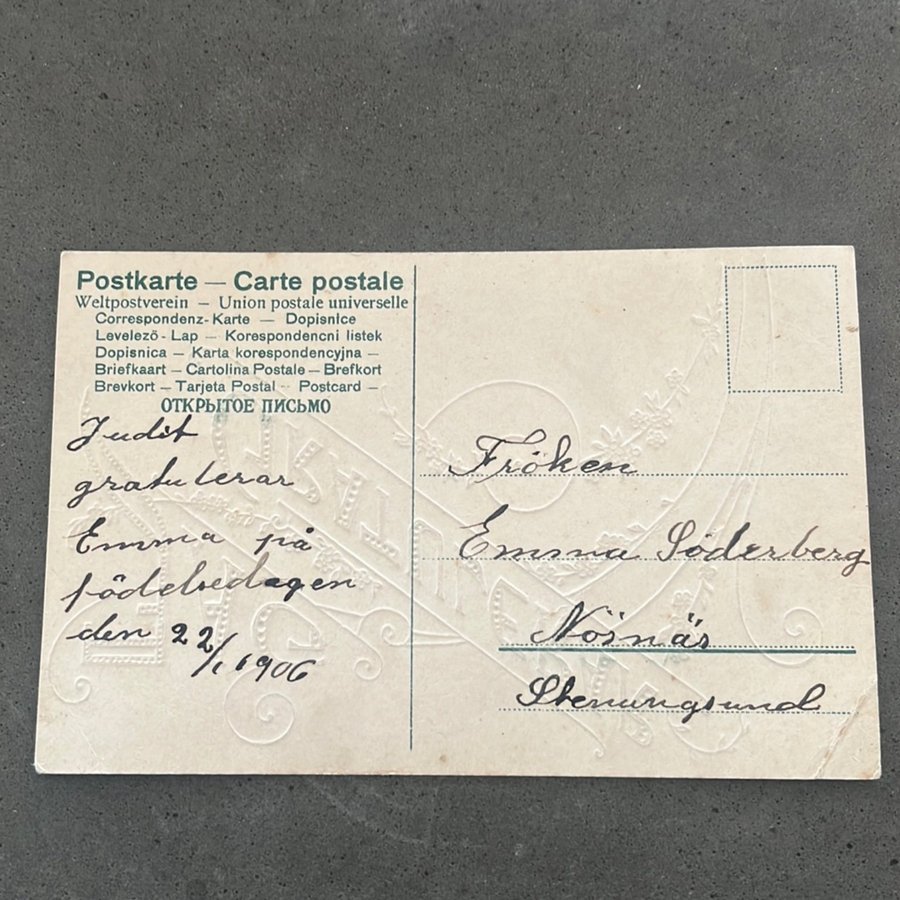 Postkarte — Carte postale
Weltpostverein — Union postale universelle
Correspondenz-Karte — Dopisnice
Levelező-Lap — Korespondencni listek
Dopisnica — Karta korespondencyjna —
Briefkaart — Cartolina Postale — Brefkort
Brevkort — Tarjeta Postal — Postcard —
ОТКРЫТОЕ ПИСЬМО
Judit
gratulerar
Emma på
födelsedagen
den 22/1 1906
Fröken
Emma Söderberg
Nösnäs
Stenungsund